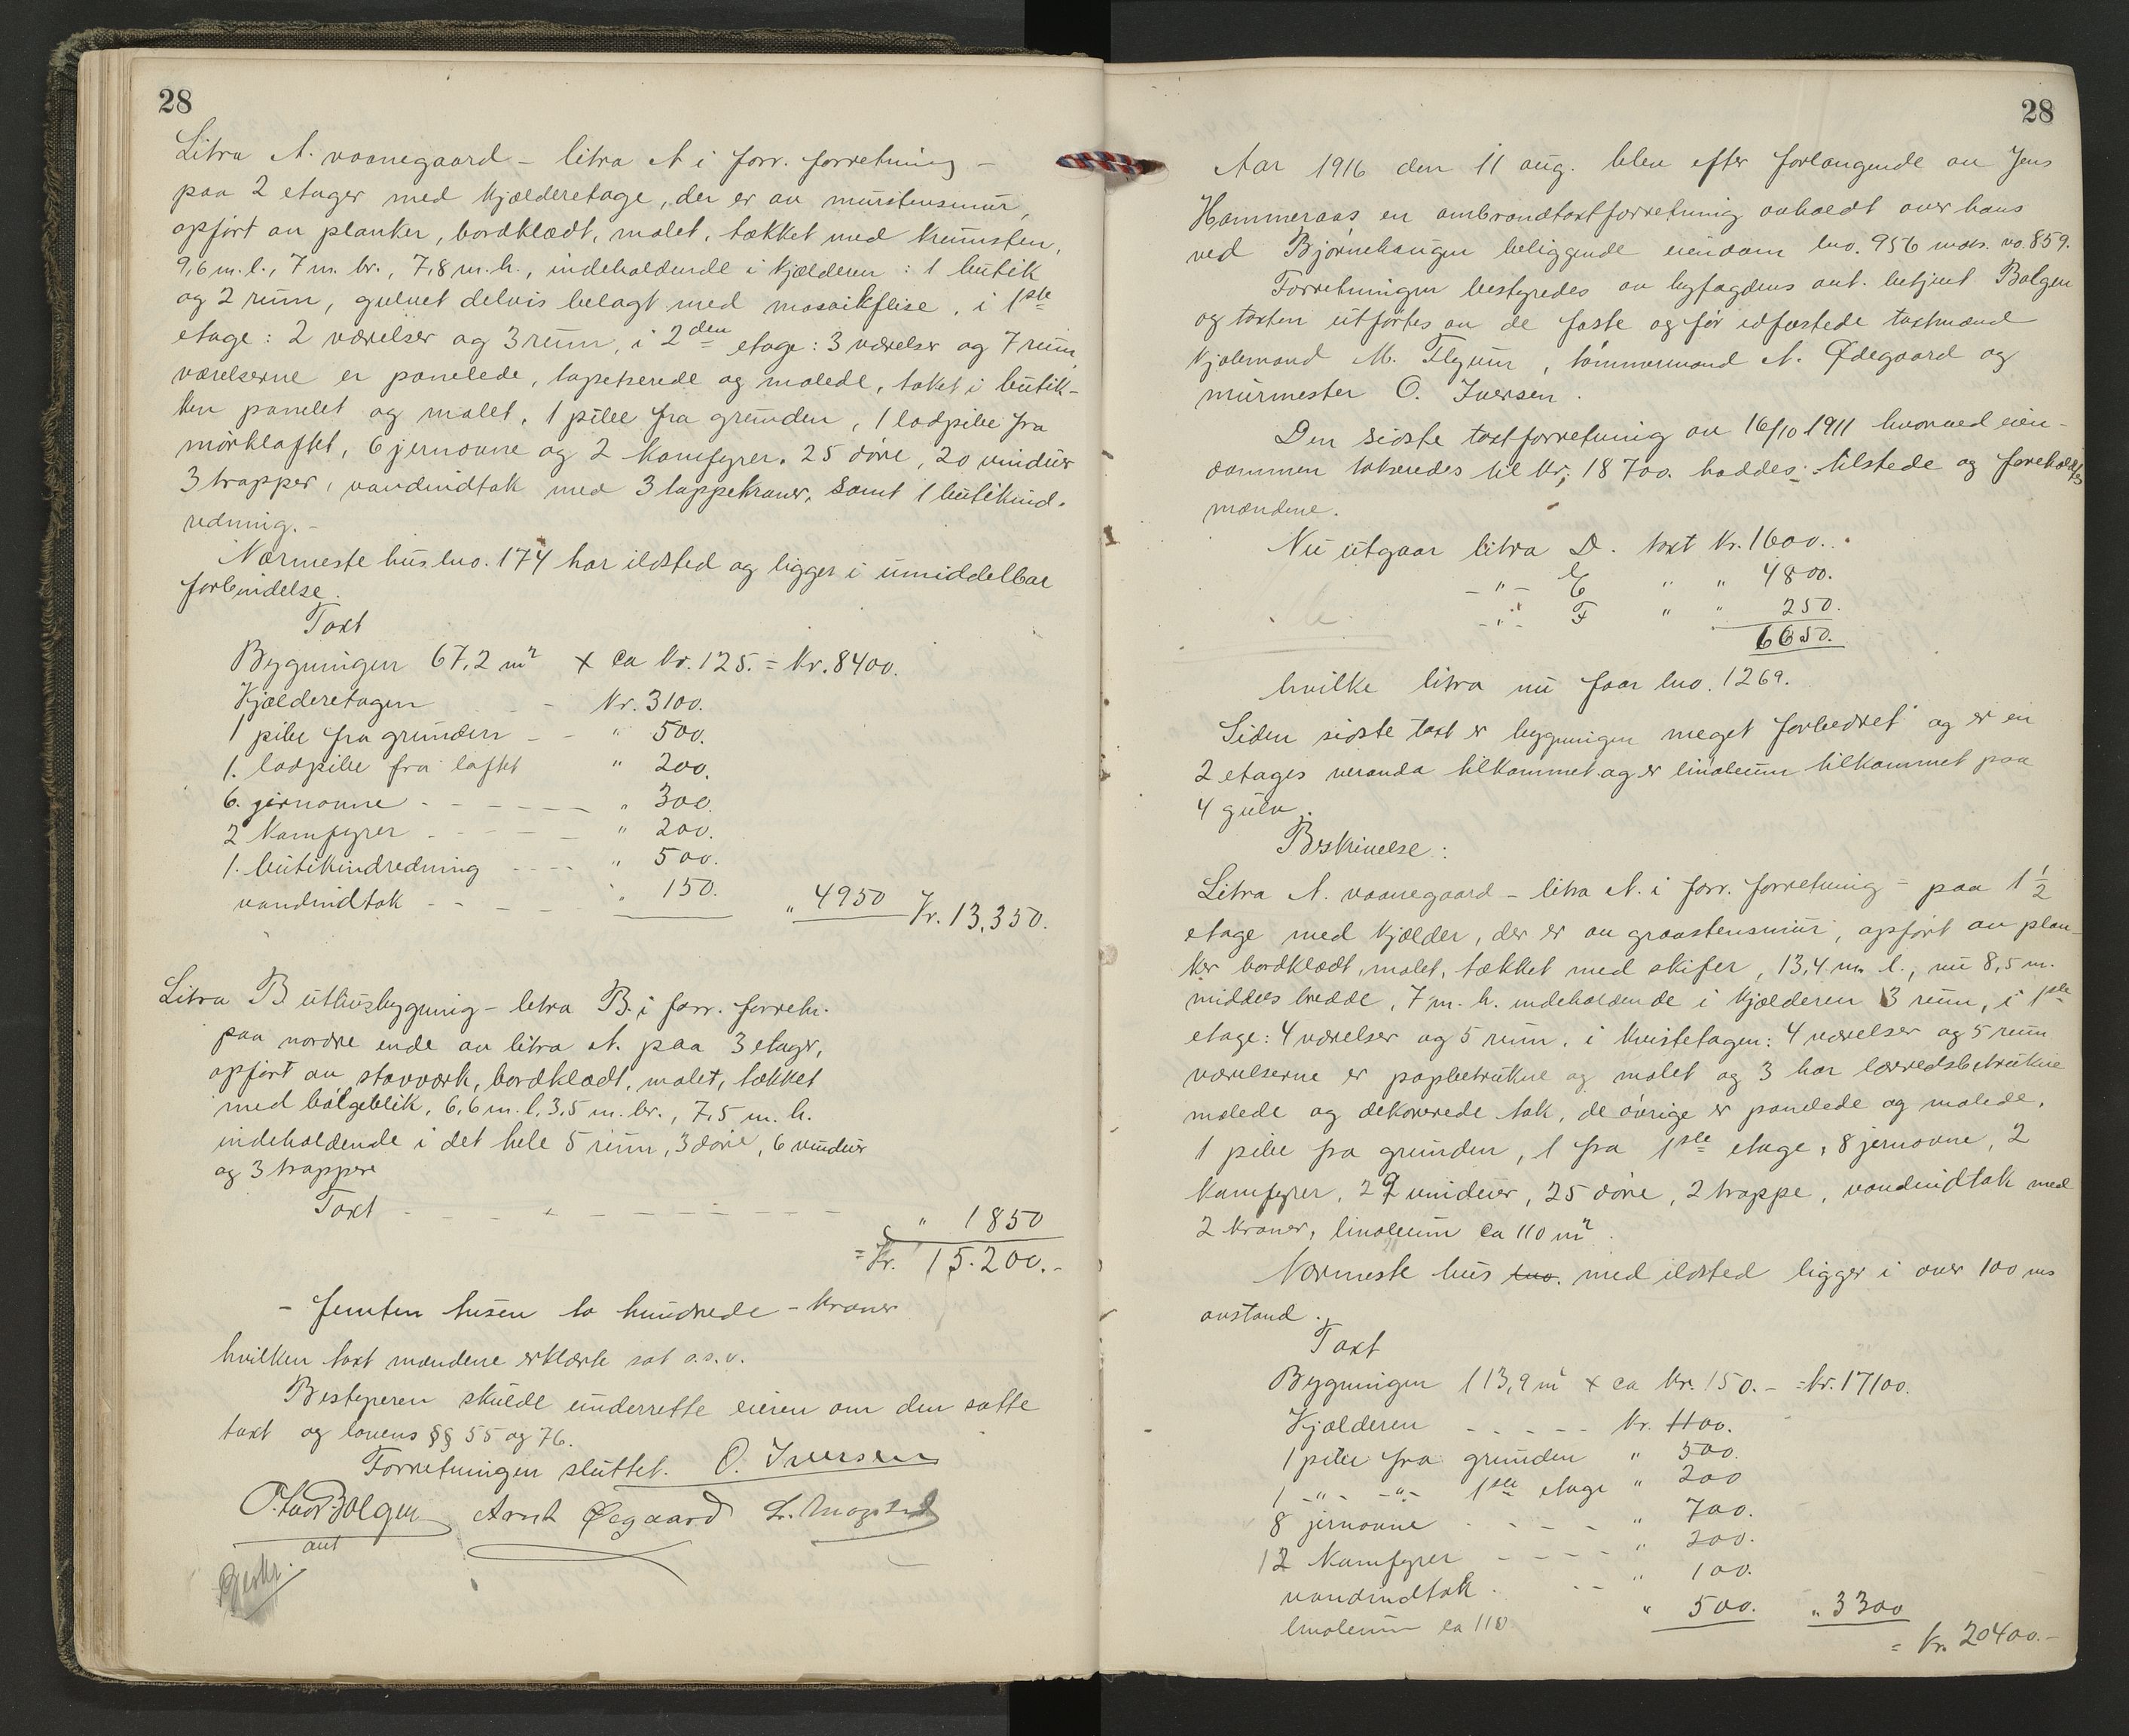 28
Litra A. vaanegaard - litra A i forr. forretning -
paa 2 etager med kjælderetage, der er av murstensmur,
opført av planker, bordklædt, malet, tækket med krumsten,
9,6 m. l., 7 m. br., 7,8 m. h., indeholdende i kjælderen: 1 butik
og 2 rum, gulvet delvis belagt med mosaikflise, i 1ste
etage: 2 værelser og 3 rum, i 2den etage: 3 værelser og 7 rum,
værelserne er panelede, tapetserede og malede, taket i butik-
ken panelet og malet, 1 pibe fra grunden, 1 lodpibe fra
mørkloftet, 6 jernovne og 2 komfyrer. 25 døre, 20 vinduer
3 trapper, vandindtak med 3 tappekraner, samt 1 butikind-
redning. -
Nærmeste hus lno. 174 har ildsted og ligger i umiddelbar
forbindelse.
Taxt
Bygningen 67,2 m² x ca kr. 125. = kr. 8400.
Kjælderetagen - kr. 3100.
1 pibe fra grunden - - " 500.
1. lodpibe fra loftet " 200.
6. jernovne - - - - - " 300.
2 komfyrer - - - - " 200.
1. butikindredning - - - - " 500.
vandindtak - - - - " 150. " 4950 Kr. 13,350.
Litra B uthusbygning - litra B. i forr. forretn.
paa nordre ende av litra A. paa 3 etager,
opført av stavværk, bordklædt, malet, tækket
med bølgeblik, 6,6 m. l. 3,5 m. br., 7,5 m. h.
indeholdende i det hele 5 rum, 3 døre, 6 vinduer
og 3 trapper
Taxt - - - - - - - - - " 1850
= Kr. 15.200.-
- femten tusen to hundrede - kroner
hvilken taxt mændene erklærte sat o.s.v.
Bestyreren skulde underrette eieren om den satte
taxt og lovens §§ 55 og 76.
Forretningen sluttet. O. Iversen
Bolgen Arnt Øegaard
aut
28
Aar 1916 den 11 aug. blev efter forlangende av Jens
Hammeraas en ombrandtaxtforretning avholdt over hans
ved Bjørnehaugen beliggende eiendom lno. 956 matr. no. 859.
Forretningen bestyredes av byfogdens aut. betjent Bolgen
og taxten utførtes av de faste og før edfæstede taxtmænd
kjølemand M. Flygum, tømmermand A. Ødegaard og
murmester O. Iversen.
Den sidste taxtforretning av 16/10 1911 hvorved eien-
dommen takseredes til kr. 18700. haddes tilstede og foreholdtes
mændene.
Nu utgaar litra D. taxt kr. 1600.
- " - E " " 4800.
- " - F " " 250.
6650.
hvilke litra nu faar lno. 1269.
Siden sidste taxt er bygningen meget forbedret og er en
2 etages veranda tilkommet og er linoleum tilkommet paa
4 gulv.
Beskrivelse:
Litra A. vaanegaard - litra A. i forr. forretning - paa 1 1/2
etage med kjælder, der er av graastensmur, opført av plan-
ker bordklædt, malet, tækket med skifer, 13,4 m. l., nu 8,5 m.
middels bredde, 7 m. h. indeholdende i kjælderen 3 rum, i 1ste
etage: 4 værelser og 5 rum, i kvistetagen: 4 værelser og 5 rum
værelserne er papbetrukne og malet og 3 har lærredsbetrukne
malede og dekorerede tak, de øvrige er panelede og malede,
1 pibe fra grunden, 1 fra 1ste etage, 8 jernovne, 2
komfyrer, 29 vinduer, 25 døre, 2 trappe, vandindtak med
2 kraner, linoleum ca 110 m².
Nærmeste hus lno. med ildsted ligger i over 100 ms
avstand.
Taxt
Bygningen 113,9 m² x ca kr. 150. - = kr. 17100.
Kjælderen - - - - - kr. 1100.
1 pibe fra grunden " 500.
1 - " - - " - 1ste etage " 200
8 jernovne - - - - " 700.
2 komfyrer - - - - " 200.
vandindtak - - - " 100.
linoleum ca 110 " 500. " 3300
= Kr. 20400.-